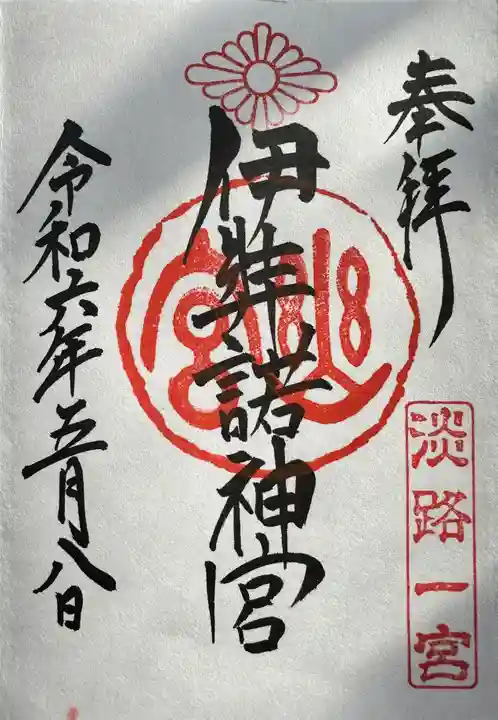 奉拝
淡路一宮
伊弉諾神宮
令和六年五月八日